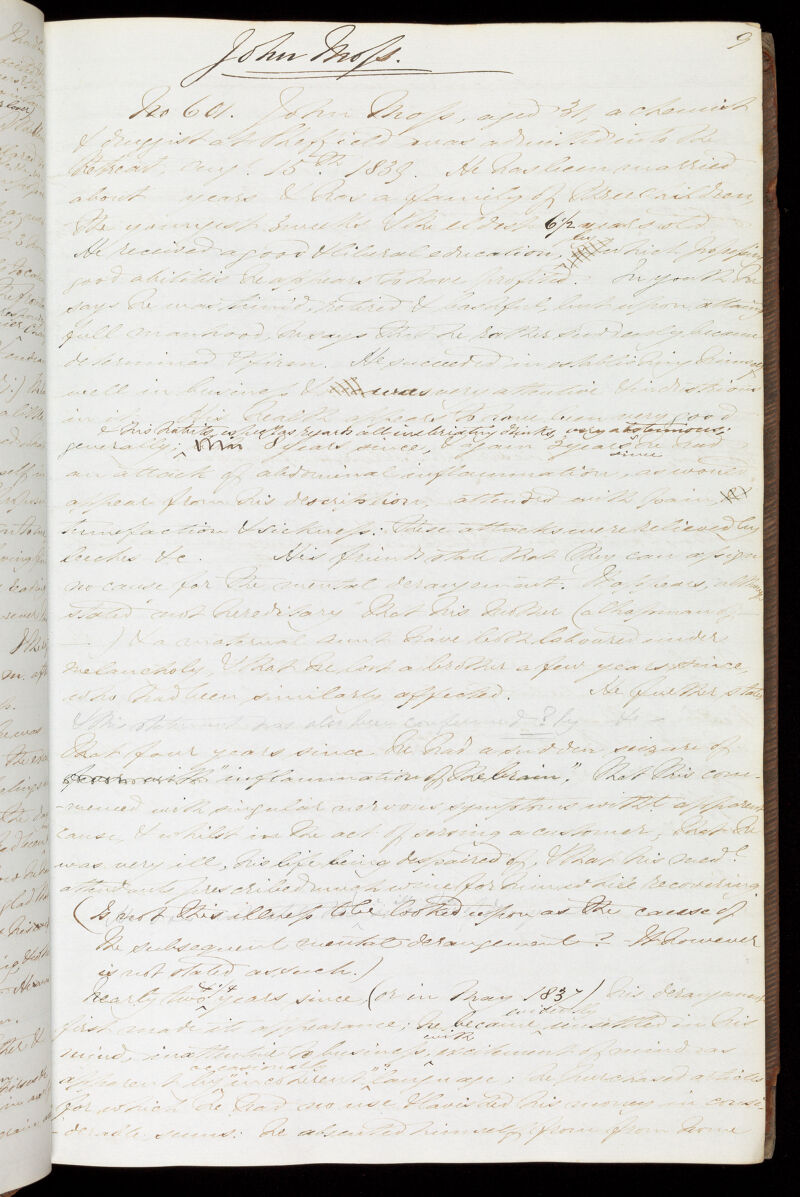 9
John Moss.
No 641. John Moss, aged 31, a chemist
& druggist at Sheffield was admitted into the
Retreat, Augt. 15th 1839. He has been married
about years & has a family of three children
the youngest 3 weeks & the eldest 6 1/2 years old.
He received a good & liberal education, by which possessing
good abilities he appears to have profited. In youth he
says he was timid, retired & bashful, but upon attaining
full manhood, he says that he rather suddenly became
determined & firm. He succeeded in establishing himself
well in business & was very attentive & industrious
in it. His health appears to have been very good
& his habits as regards all inebriating drinks, very abstemious;
generally; 8 years since, & again 3 years since he had
an attack of abdominal inflammation, as would
appear from his description, attended with pain,
tumefaction & sickness: these attacks were relieved by
leeches &c. His friends state that they can assign
no cause for the mental derangement. It appears, altho'
stated "not hereditary" that his mother (a Chapman of
—) & a maternal aunt have both laboured under
melancholy, & that he lost a brother a few years since,
who had been similarly affected. He further states
& this statement has also been confirmed? by
that four years since he had a sudden seizure of
"inflammation of the brain." That this com-
-menced with singular nervous symptoms witht. apparent
cause, & whilst in the act of serving a customer, that he
was very ill, his life being despaired of, & that his medl.
attendants prescribed much wine for him while recovering
(Is not this illness to be looked upon as the cause of
the subsequent mental derangement? It however
is not stated as such.)
Nearly two 1/4 years since (or in May 1837) his derangement
first made its appearance; he became evidently unsettled in his
mind, inattentive to business, with excitement of mind as
apparent by occasionally "incoherent" language: he purchased articles
for which he had no use & lavished his money in consi-
-derable sums: he absented himself from home